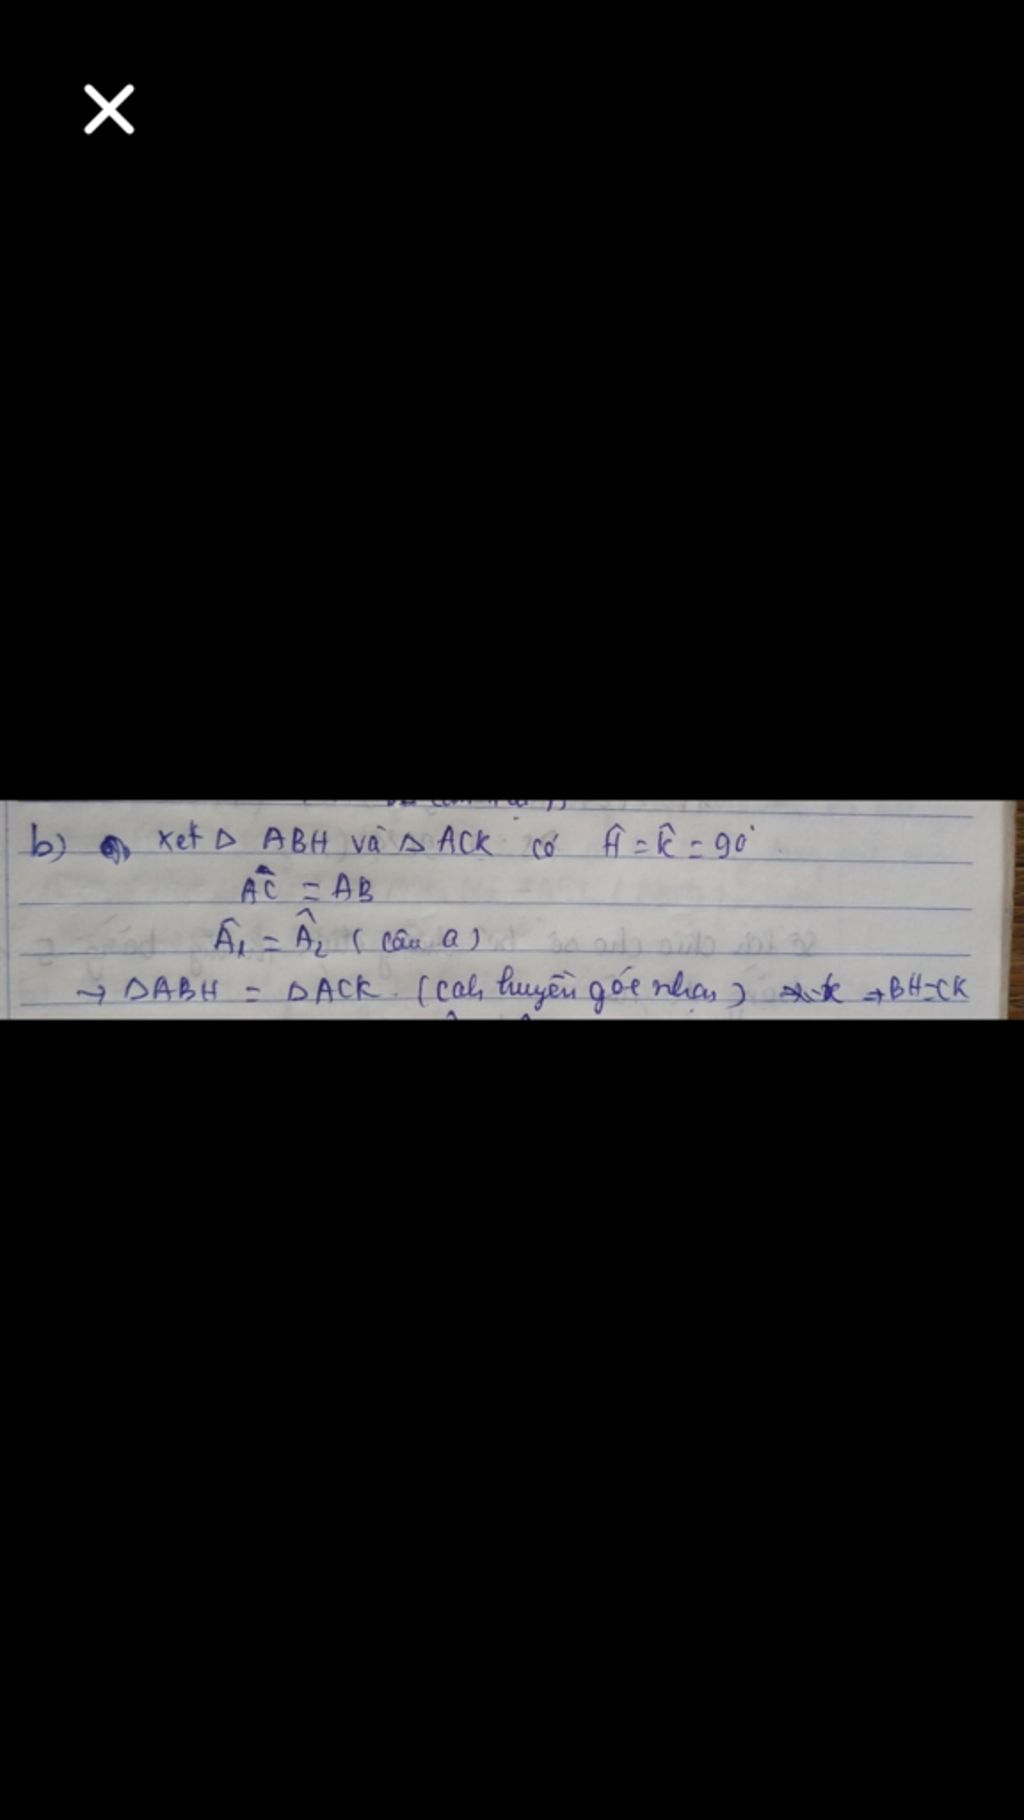 b) Xét Δ ABH và Δ ACK có Ĥ = K̂ = 90°
AC = AB
Â₁ = Â₂ ( câu a )
→ ΔABH = ΔACK. (cah huyền góc nhọn) → BH=CK